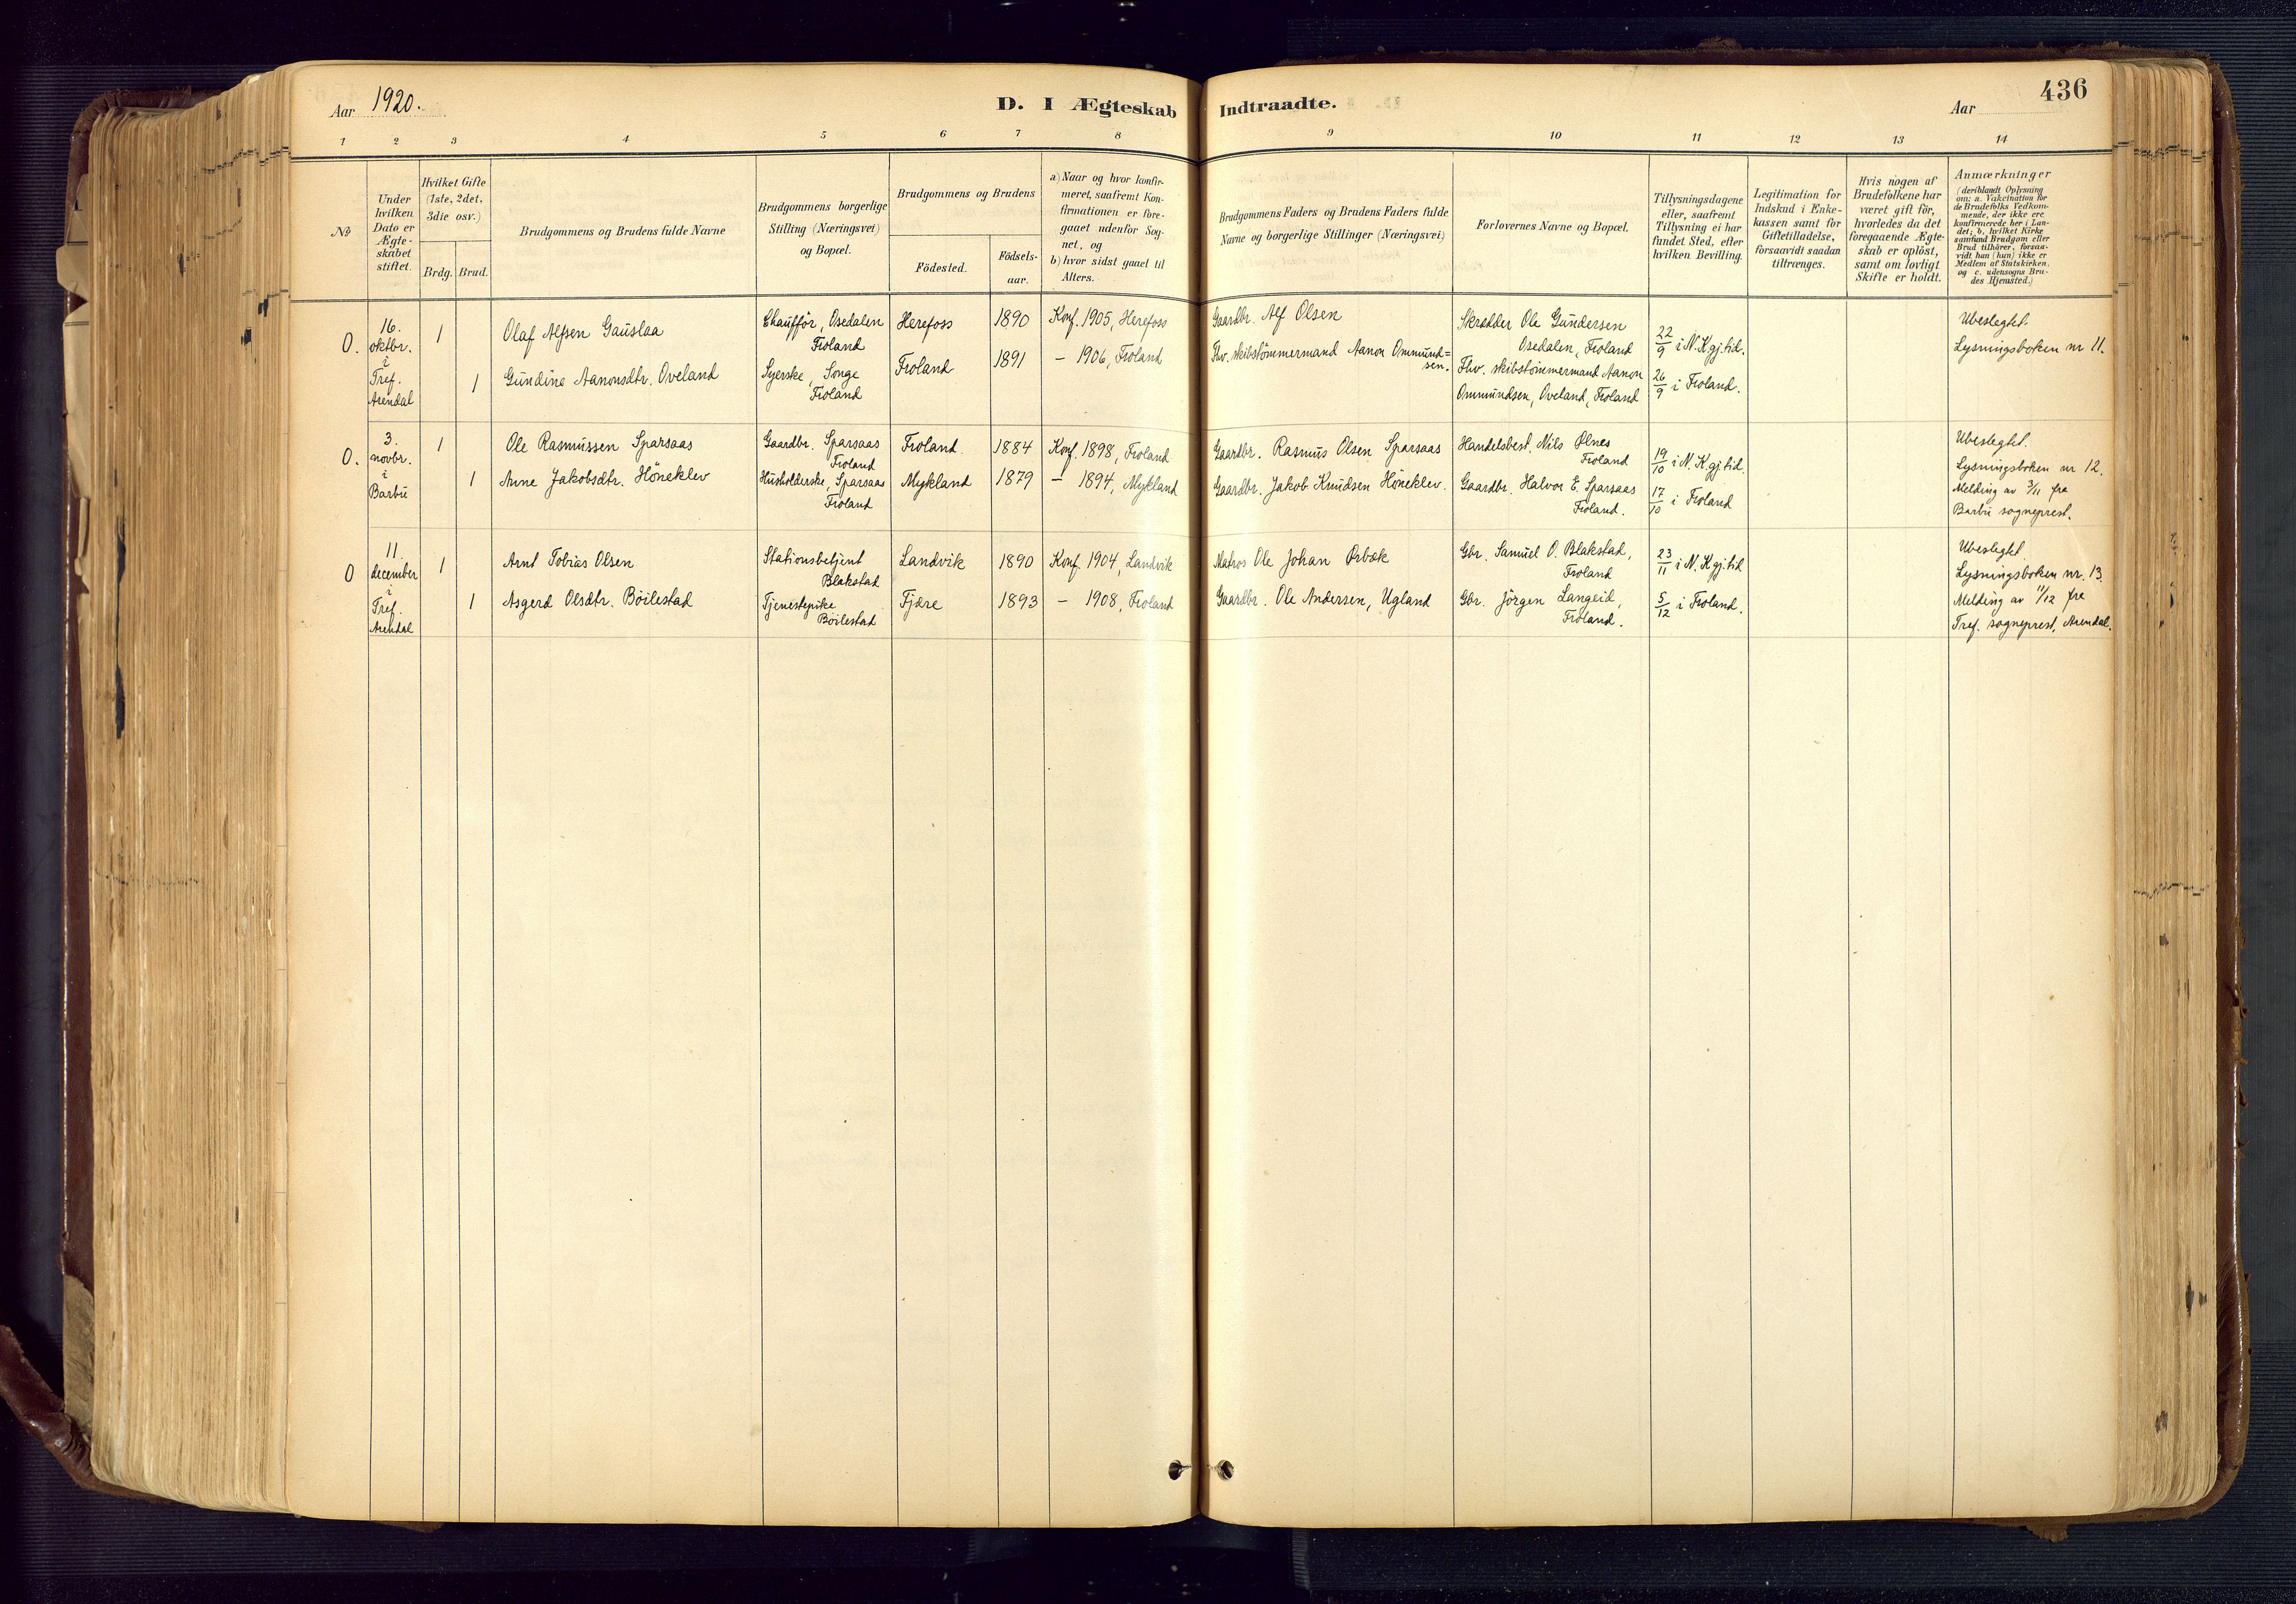 Aar 1920.
D. I Ægteskab Indtraadte.
Aar
436
1 2 3 4 5 6 7 8 9 10 11 12 13 14
No
Under hvilken Dato er Ægteskabet stiftet.
Hvilket Gifte (1ste, 2det, 3die osv.)
Brdg. Brud.
Brudgommens og Brudens fulde Navne
Brudgommens borgerlige Stilling (Næringsvei) og Bopæl.
Brudgommens og Brudens
Födested.
Födsels-aar.
a) Naar og hvor konfir-
meret, saafremt Kon-
firmationen er fore-
gaaet udenfor Sog-
net, og
b) hvor sidst gaaet til
Alters.
Brudgommens Faders og Brudens Faders fulde
Navne og borgerlige Stillinger (Næringsvei)
Forlovernes Navne og Bopæl.
Tillysningsdagene
eller, saafremt
Tillysning ei har
fundet Sted, efter
hvilken Bevilling.
Legitimation for
Indskud i Enke-
kassen samt for
Giftetilladelse,
forsaavidt saadan
tiltrænges.
Hvis nogen af
Brudefolkene har
været gift för,
hvorledes da det
foregaaende Ægte-
skab er oplöst,
samt om lovligt
Skifte er holdt.
Anmærkninger
(deriblandt Oplysning
om: a. Vakcination for
de Brudefolks Vedkom-
mende, der ikke ere
konfirmerede her i Lan-
det; b. hvilket Kirke
samfund Brudgom eller
Brud tilhörer, forsaa-
vidt han (hun) ikke er
Medlem af Statskirken,
og c. udensogns Bru-
des Hjemsted.)
O.
16.
oktbr.
i
Tref.
Arendal
1
Olaf Alfsen Gauslaa
Chaufför, Osedalen
Froland
Herefoss
1890
Konf. 1905, Herefoss
Gaardbr. Alf Olsen
Skrædder Ole Gundersen
Osedalen, Froland
22/9 i N. K gj. tid.
Ubeslegtet.
Lysningsboken nr 11.
1
Gundine Aanonsdtr. Oveland
Syerske, Songe
Froland
Froland
1891
— 1906, Froland
Fhv. skibstömmermand Aanon Ommund=
sen.
Fhv. skibstömmermand Aanon
Ommundsen, Oveland, Froland
26/9 i Froland.
O.
3.
novbr.
i
Barbu
1
Ole Rasmussen Sparsaas
Gaardbr. Sparsaas
Froland
Froland.
1884
Konf. 1898, Froland
Gaardbr. Rasmus Olsen Sparsaas
Handelsbest. Nils Ølnes
Froland
19/10 i N. K. gj. tid.
Ubeslegtet.
Lysningsboken nr 12.
Melding av 3/11 fra
Barbu sogneprest.
1
Anne Jakobsdtr. Höneklev
Husholderske, Sparsaas
Froland
Mykland
1879
— 1894, Mykland
Gaardbr. Jakob Knudsen Höneklev.
Gaardbr. Halvor E. Sparsaas
Froland.
17/10 i Froland
O
11.
december
i
Tref.
Arendal
1
Arnt Tobias Olsen
Stationsbetjent
Blakstad
Landvik
1890
Konf. 1904, Landvik
Matros Ole Johan Ørbæk
Gbr. Samuel O. Blakstad,
Froland
23/11 i N. K gj. tid
Ubeslegtet.
Lysningsboken nr. 13.
Melding av 11/12 fra
Tref. sogneprest, Arendal.
1
Asgerd Olsdtr. Böilestad
Tjenestepike
Böilestad
Fjære
1893
— 1908, Froland
Gaardbr. Ole Andersen, Ugland
Gbr. Jörgen Langeid,
Froland.
5/12 i Froland.